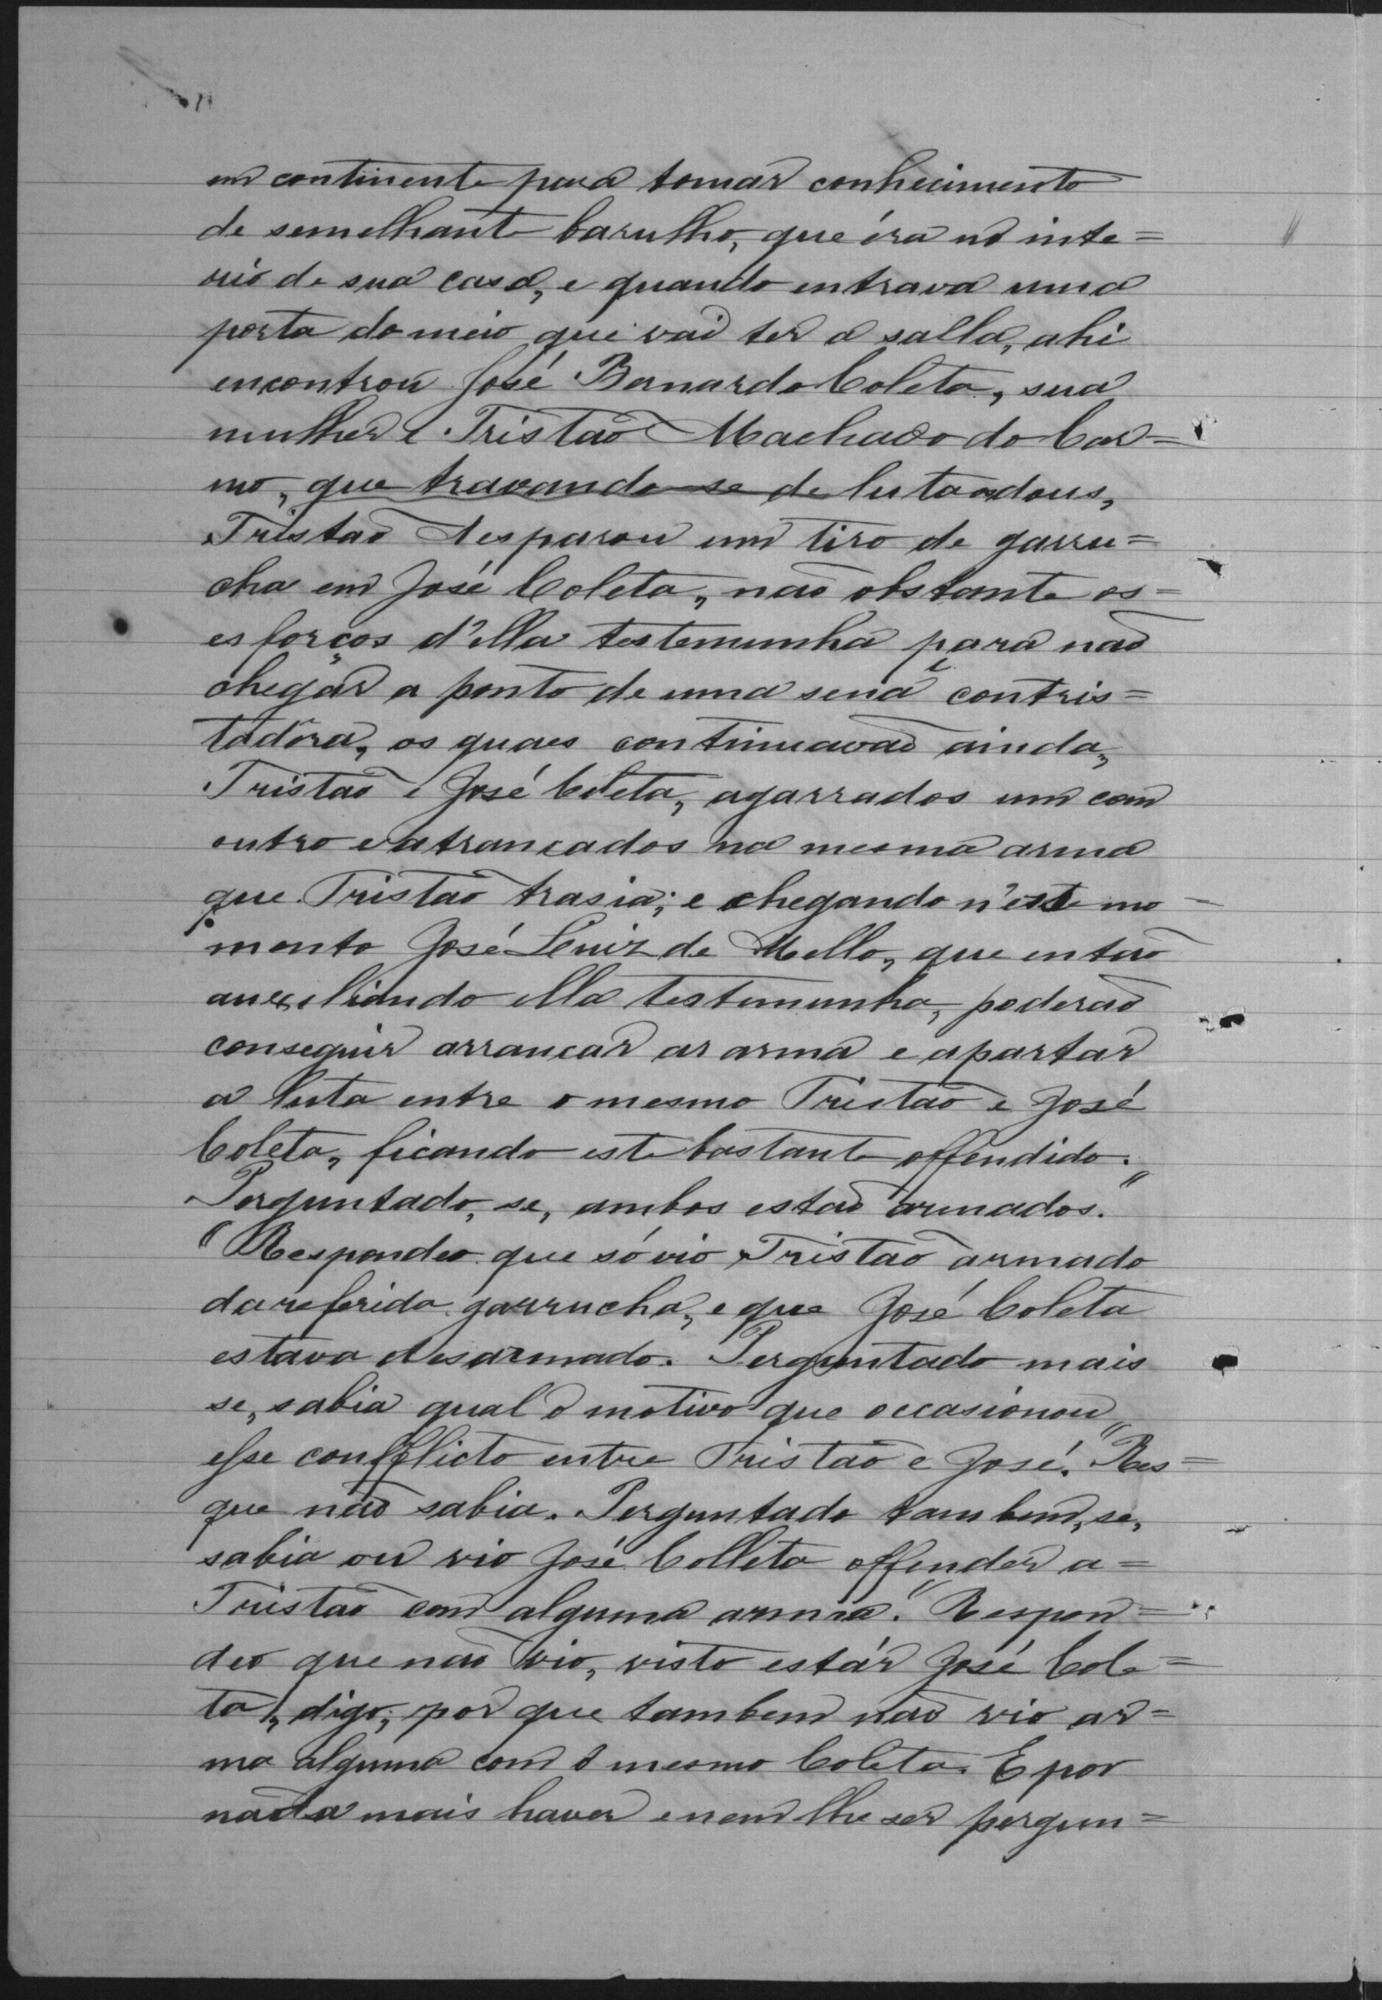 em continente para tomar conhecimento
de semelhante barulho, que éra no inte=
rio de sua casa, e quando entrava uma
porta do meio que vai ter a salla, ahi
encontrou José Bernardo Coleta, sua
mulher e Tristão Machado do Car=
mo, que travando-se de luta os dous,
Tristão desparou um tiro de garru=
cha em José Coleta, não obstante os=
esforços d'ella testemunha para não
chegar a ponto de uma sena contris=
tadôra, os quaes continuavão ainda,
Tristão e José Coleta, agarrados um com
outro e atrancados na mesma arma
que Tristão trasia; e chegando n'este mo-
mento José Luiz de Mello, que então
auxiliando ella testemunha, poderão
conseguir arrancar as arma e apartar
a luta entre o mesmo Tristão e José
Coleta, ficando este bastante offendido.
Perguntado, se, ambos estão armados."
"Respondeo que só vio Tristão armado
da referida garrucha, e que José Coleta
estava desarmado. Perguntado mais
se, sabia qual o motivo que occasionou
esse conflicto entre Tristão e José. "Res=
que não sabia. Perguntado tambem, se,
sabia ou vio José Colleta offender a=
Tristão com alguma arma. "Respon=
deo que não vio, visto estár José Cole=
ta, digo, por que tambem não vio ar=
ma alguma com o mesmo Coleta. E por
nada mais haver e nem lhe ser pergun=